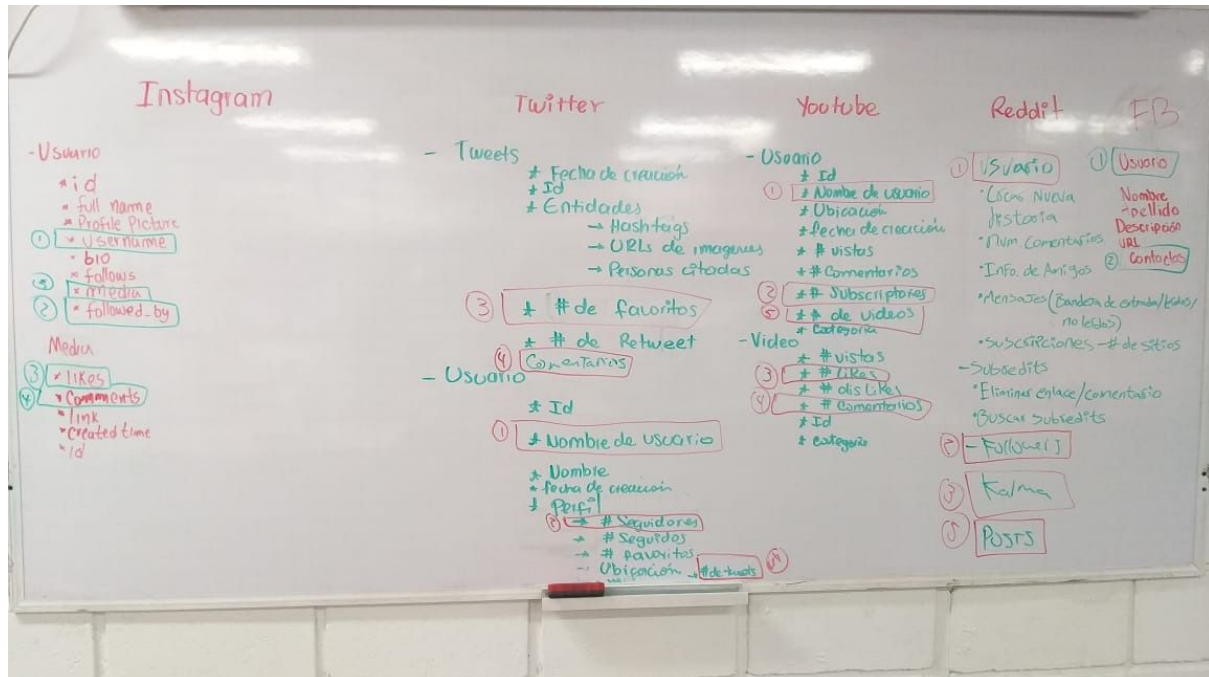 Instagram
- Usuario
* id
* full name
* Profile Picture
① * Username
* bio
* follows
⑤ * media
② * followed_by
Media
③ * likes
④ * Comments
* link
* Created time
* id
Twitter
- Tweets
* Fecha de creación
* Id
* Entidades
→ Hashtags
→ URLs de imagenes
→ Personas citadas
③ * # de favoritos
* # de Retweet
④ Comentarios
- Usuario
* Id
① * Nombre de usuario
* Nombre
* fecha de creación
* Perfil
② → # Seguidores
→ # Seguidos
→ # favoritos
→ Ubicación → # de tweets ⑤
Youtube
- Usuario
* Id
① * Nombre de usuario
* Ubicación
* fecha de creación
* # vistas
* # Comentarios
② * # Subscriptores
⑤ * # de videos
* Categoria
- Video
* # vistas
③ * # likes
* # dislikes
④ * # Comentarios
* Id
* categoria
Reddit
① Usuario
• Nueva
• Num. Comentarios
• Info. de Amigos
• Mensajes (Bandeja de entrada/
no leídos)
• Suscripciones - # de sitios
- Subreddits
• Eliminar enlace/comentario
• Buscar subredits
② - Followers
③ Kalma
⑤ Posts
FB
① Usuario
Nombre
Apellido
Descripción
URL
② Contactos